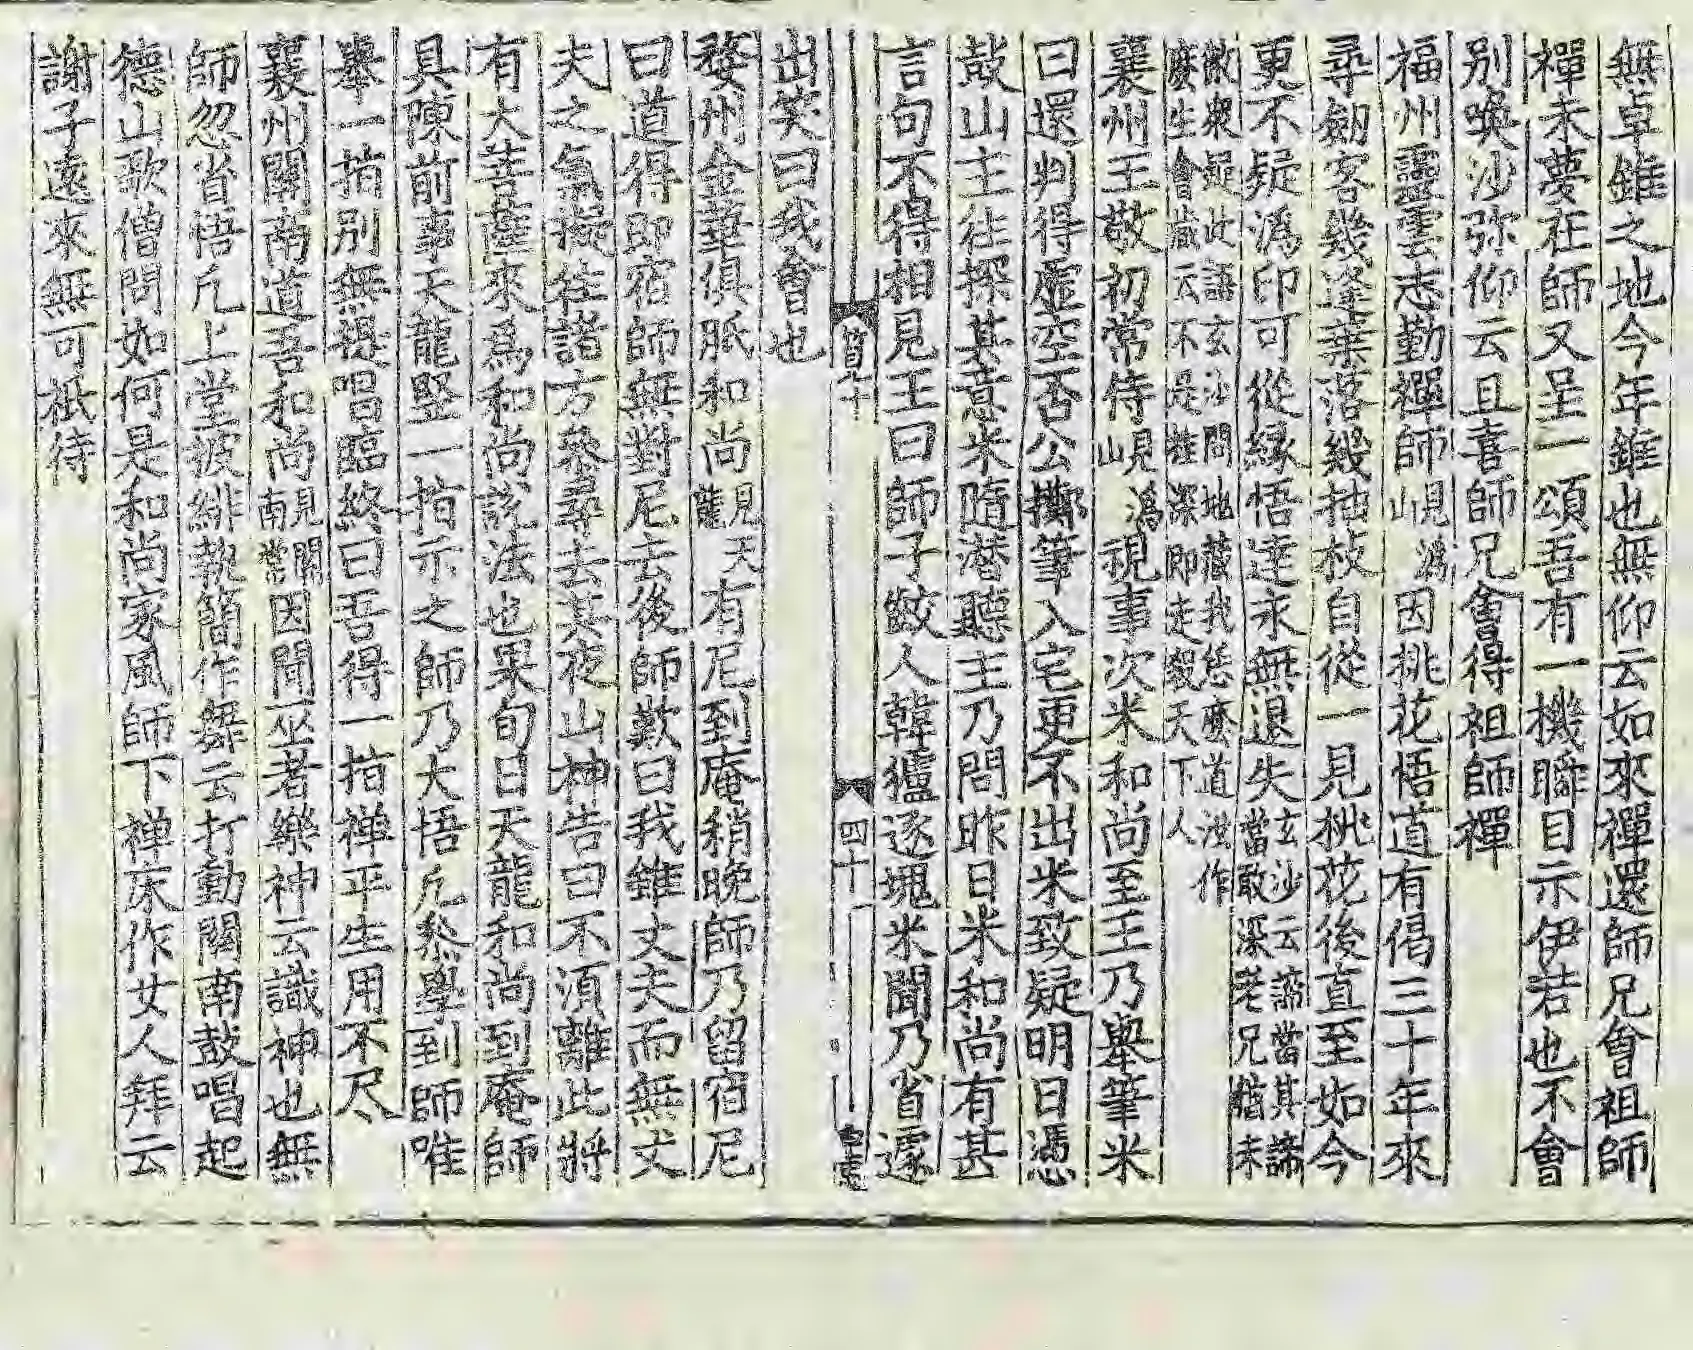 無卓錐之地今年錐也無仰云如來禪還師兄會祖師
禪未夢在師又呈一頌吾有一機瞬目示伊若也不會
别喚沙弥仰云且喜師兄會得祖師禪
福州靈雲志勤禪師見溈山因挑花悟道有偈三十年來
尋劒客幾逢葉落幾抽枝自從一見挑花後直至如今
更不疑溈印可從緣悟達永無退失玄沙云諦當其諦當敢深老兄猶未
徹衆疑此語玄沙問地藏我恁麽道汝作麽生會藏云不是桂深即走殺天下人
襄州王敬初常侍見溈山視事次米和尚至王乃擧筆米
曰還判得虛空否公擲筆入宅更不出米致疑明日憑
鼓山主徃探其意米隨潛聽主乃問昨日米和尚有甚
言句不得相見王曰師子齩人韓獹逐塊米聞乃省遽
出笑曰我會也
四十一
婺州金華俱胝和尚見天龍有尼到庵稍晚師乃留宿尼
曰道得即宿師無對尼去後師歎曰我雖丈夫而無丈
夫之氣擬徃諸方叅尋去其夜山神告曰不湏離此將
有大菩薩來爲和尚說法也果旬日天龍和尚到庵師
具陳前事天龍竪一指示之師乃大悟凢叅學到師唯
擧一指别無提唱臨終曰吾得一指禅平生用不尽
襄州關南道吾和尚見關南常因聞巫者樂神云識神也無
師忽省悟凢上堂披緋執簡作舞云打動關南鼓唱起
德山歌僧問如何是和尚家風師下禅床作女人拜云
謝子遠來無可祇待